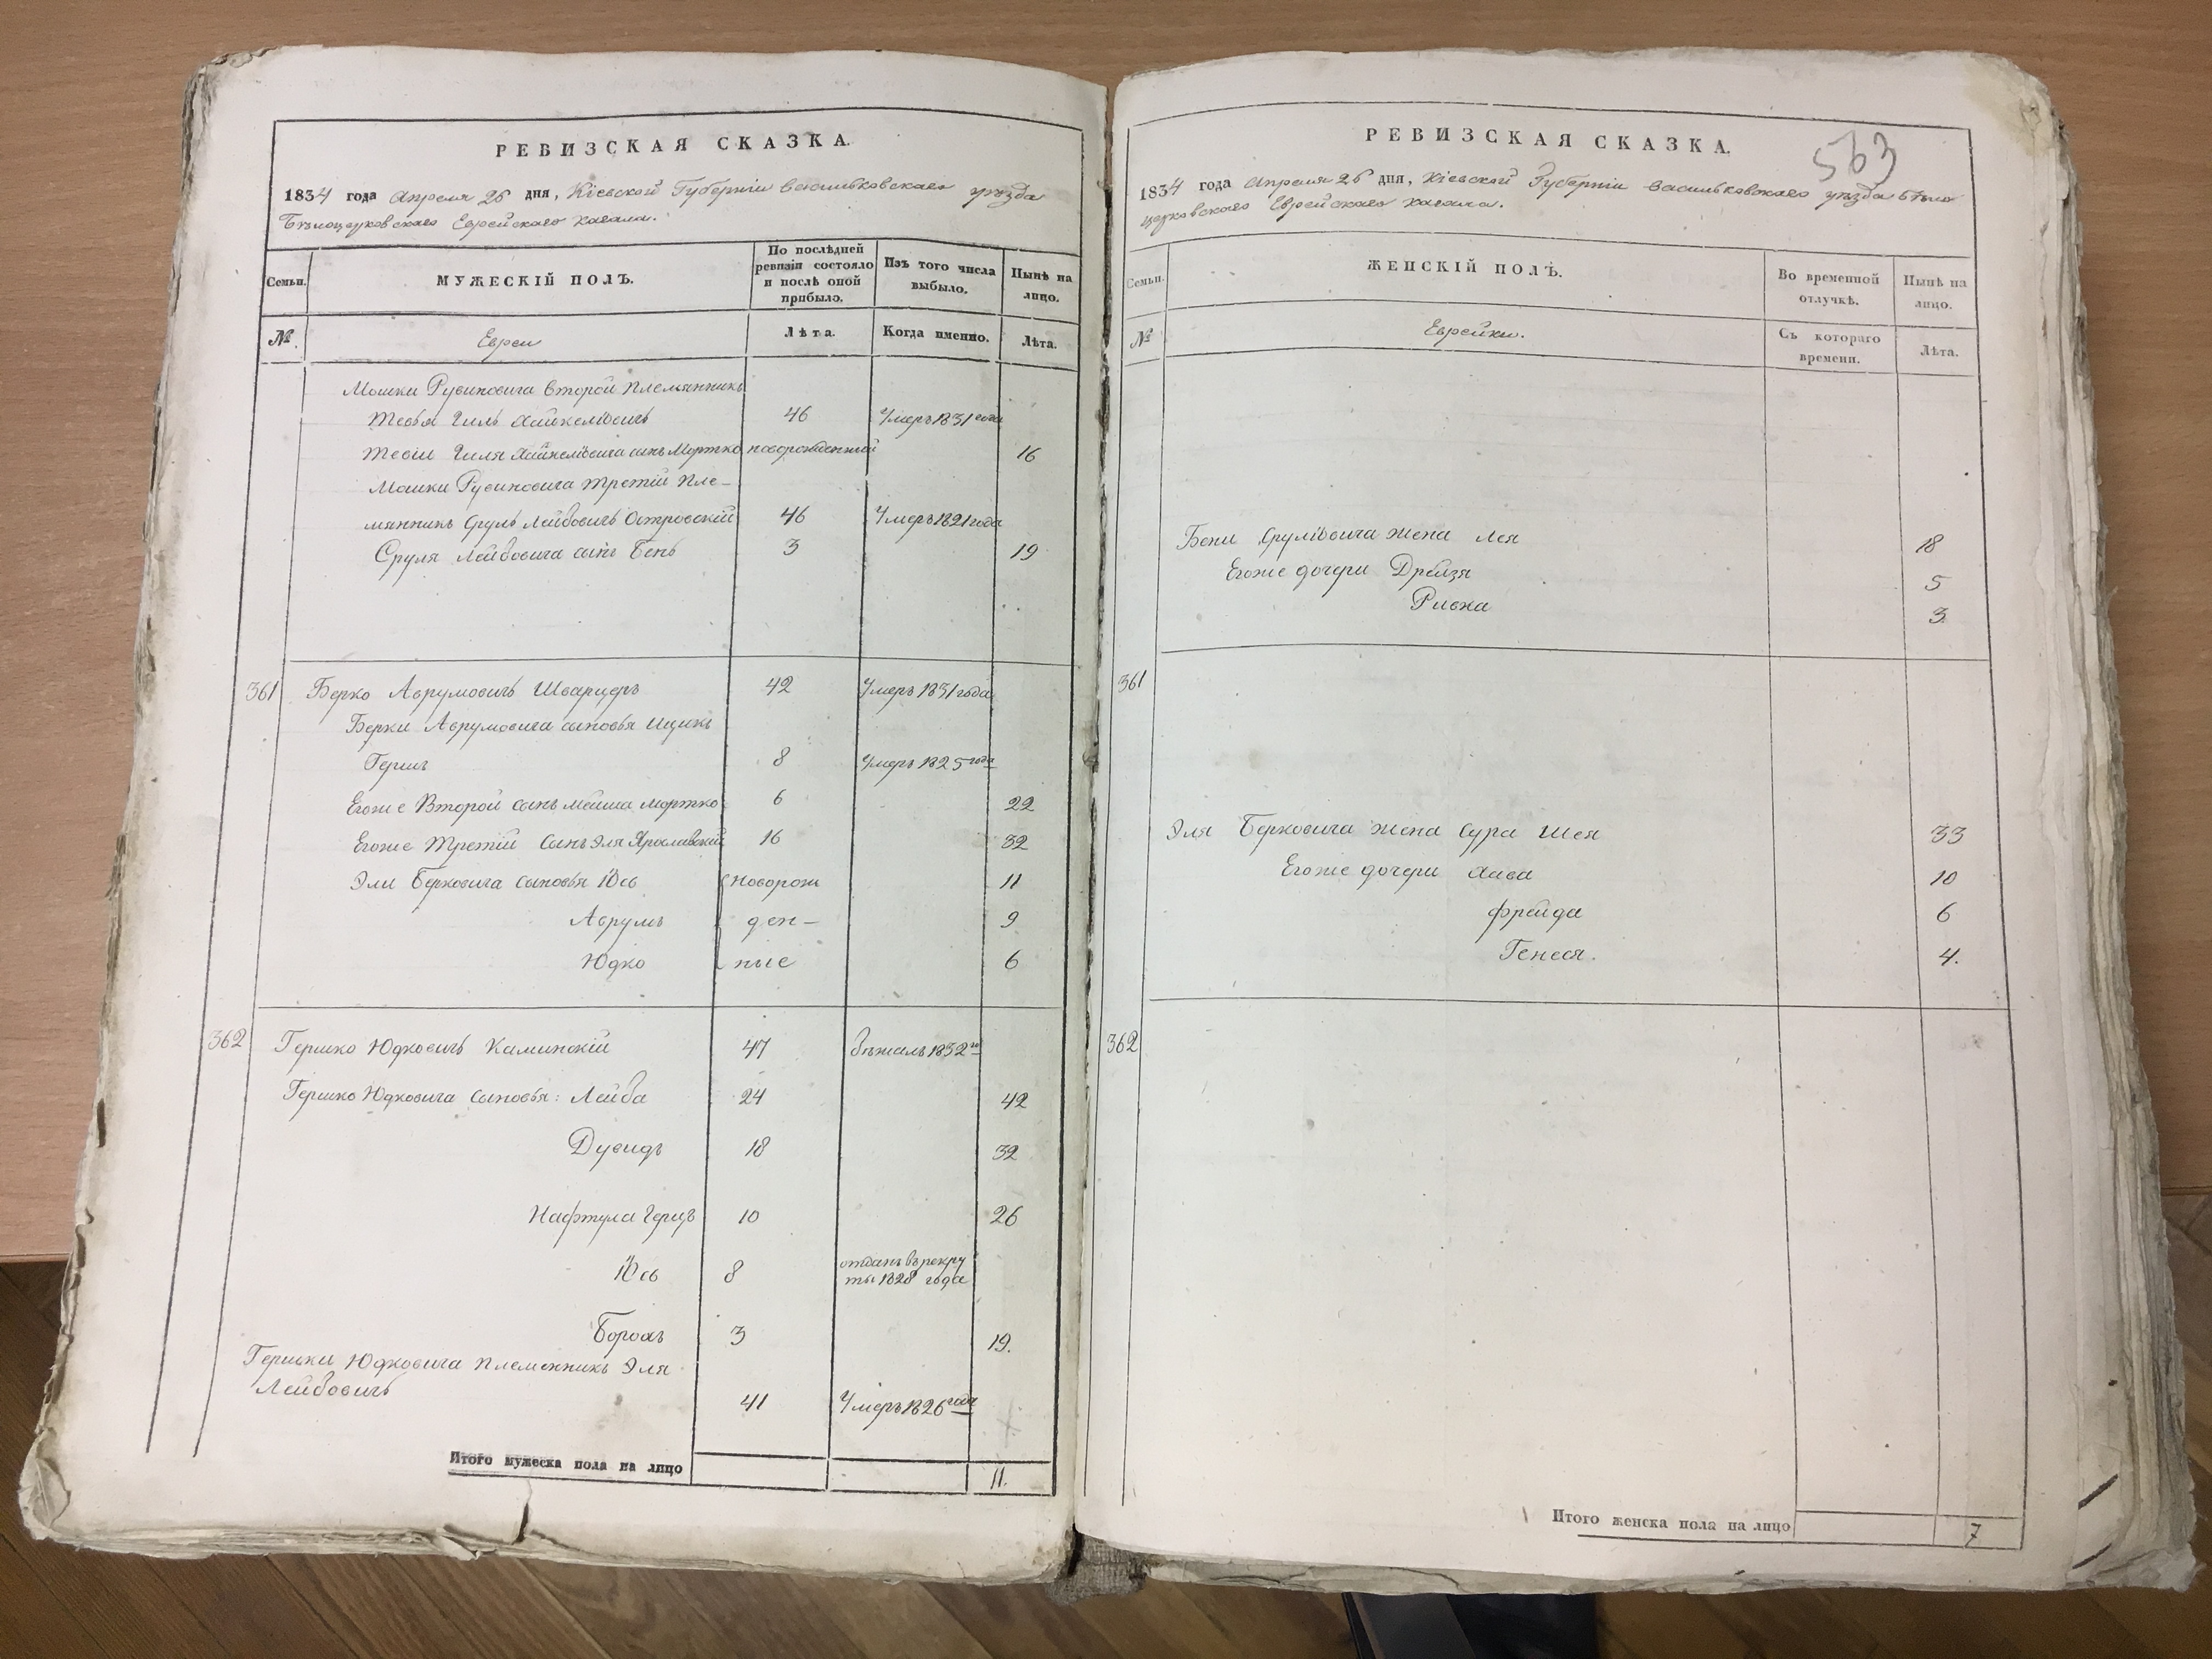 РЕВИЗСКАЯ СКАЗКА.
1834 года Апреля 25 дня, Кіевской Губерніи Васильковскаго уѣзда
Бѣлоцерковскаго Еврейскаго кагала.
Семьи.
МУЖЕСКІЙ ПОЛЪ.
По послѣдней ревизіи состояло и послѣ оной прибыло.
Изъ того числа выбыло.
Нынѣ на лицо.
№.
Евреи
Лѣта.
Когда именно.
Лѣта.
Мошки Рувиновича второй племянникъ
Тевья Гиль Хайкелiовичъ 46 Умеръ 1831 года
Тевiи Гиля Хайкелiовича сынъ Мортко новорожденный 16
Мошки Рувиновича третій пле-
мянникъ Сруль Лейбовичъ Островскій 46 Умеръ 1821 года
Сруля Лейбовича сынъ Бень 3 19
361 Берко Аврумовичъ Шварцеръ 42 Умеръ 1831 года
Берки Аврумовича сыновья Ицикъ
Гершъ 8 Умеръ 1825 года
Егоже Второй сынъ Мейша Мортко 6 22
Егоже Третій Сынъ Эля Ярославскій 16 32
Эли Берковича сыновья Іось Новорож 11
Аврумъ ден- 9
Юдко ные 6
362 Гершко Юдковичъ Каминскій 47 бѣжалъ 1832 го
Гершко Юдковича сыновья: Лейба 24 42
Дувидъ 18 32
Нафтула Герцъ 10 26
Іось 8 отданъ въ рекру
ты 1828 года
Борохъ 3 19.
Гершки Юдковича племенникъ Эля
Лейбовичъ 41 Умеръ 1826 года
Итого мужеска пола на лицо 11.
РЕВИЗСКАЯ СКАЗКА.
563
1834 года Апреля 25 дня, Кіевской Губерніи Васильковскаго уѣзда Бѣло
церковскаго Еврейскаго кагала.
Семьи.
ЖЕНСКІЙ ПОЛЪ.
Во временной отлучкѣ.
Нынѣ на лицо.
№
Еврейки.
Съ котораго времени.
Лѣта.
Бени Срулiовича жена Лея 18
Егоже дочери Дрейзя 5
Ривка 3.
361
Эля Берковича жена Сура Шея 33
Егоже дочери Хава 10
Фрейда 6
Генеся. 4.
362
Итого женска пола на лицо 7